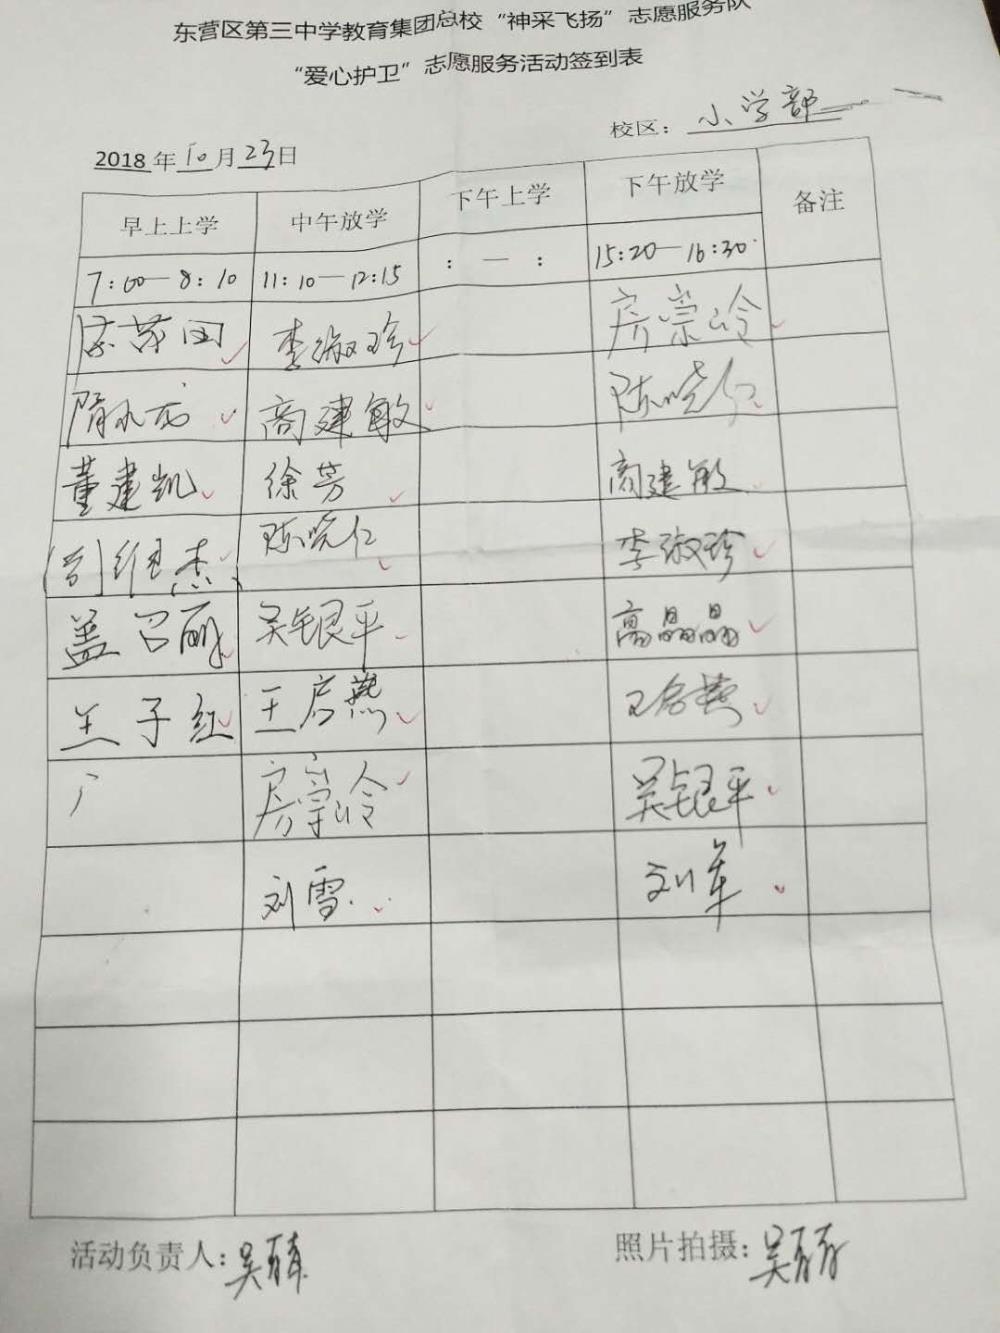 东营区第三中学教育集团总校“神采飞扬”志愿服务队
“爱心护卫”志愿服务活动签到表
校区：小学部
2018年10月23日
早上上学 中午放学 下午上学 下午放学 备注
7:00—8:10 11:10—12:15 : — : 15:20—16:30
李淑珍 房崇岭
商建敏 陈晓仁
董建凯 徐芳 商建敏
维杰 陈晓仁 李淑珍
盖召丽 吴银平 高晶晶
王子红 王启燕 王启燕
房崇岭 吴银平
刘雪 刘军
活动负责人：吴 照片拍摄：吴